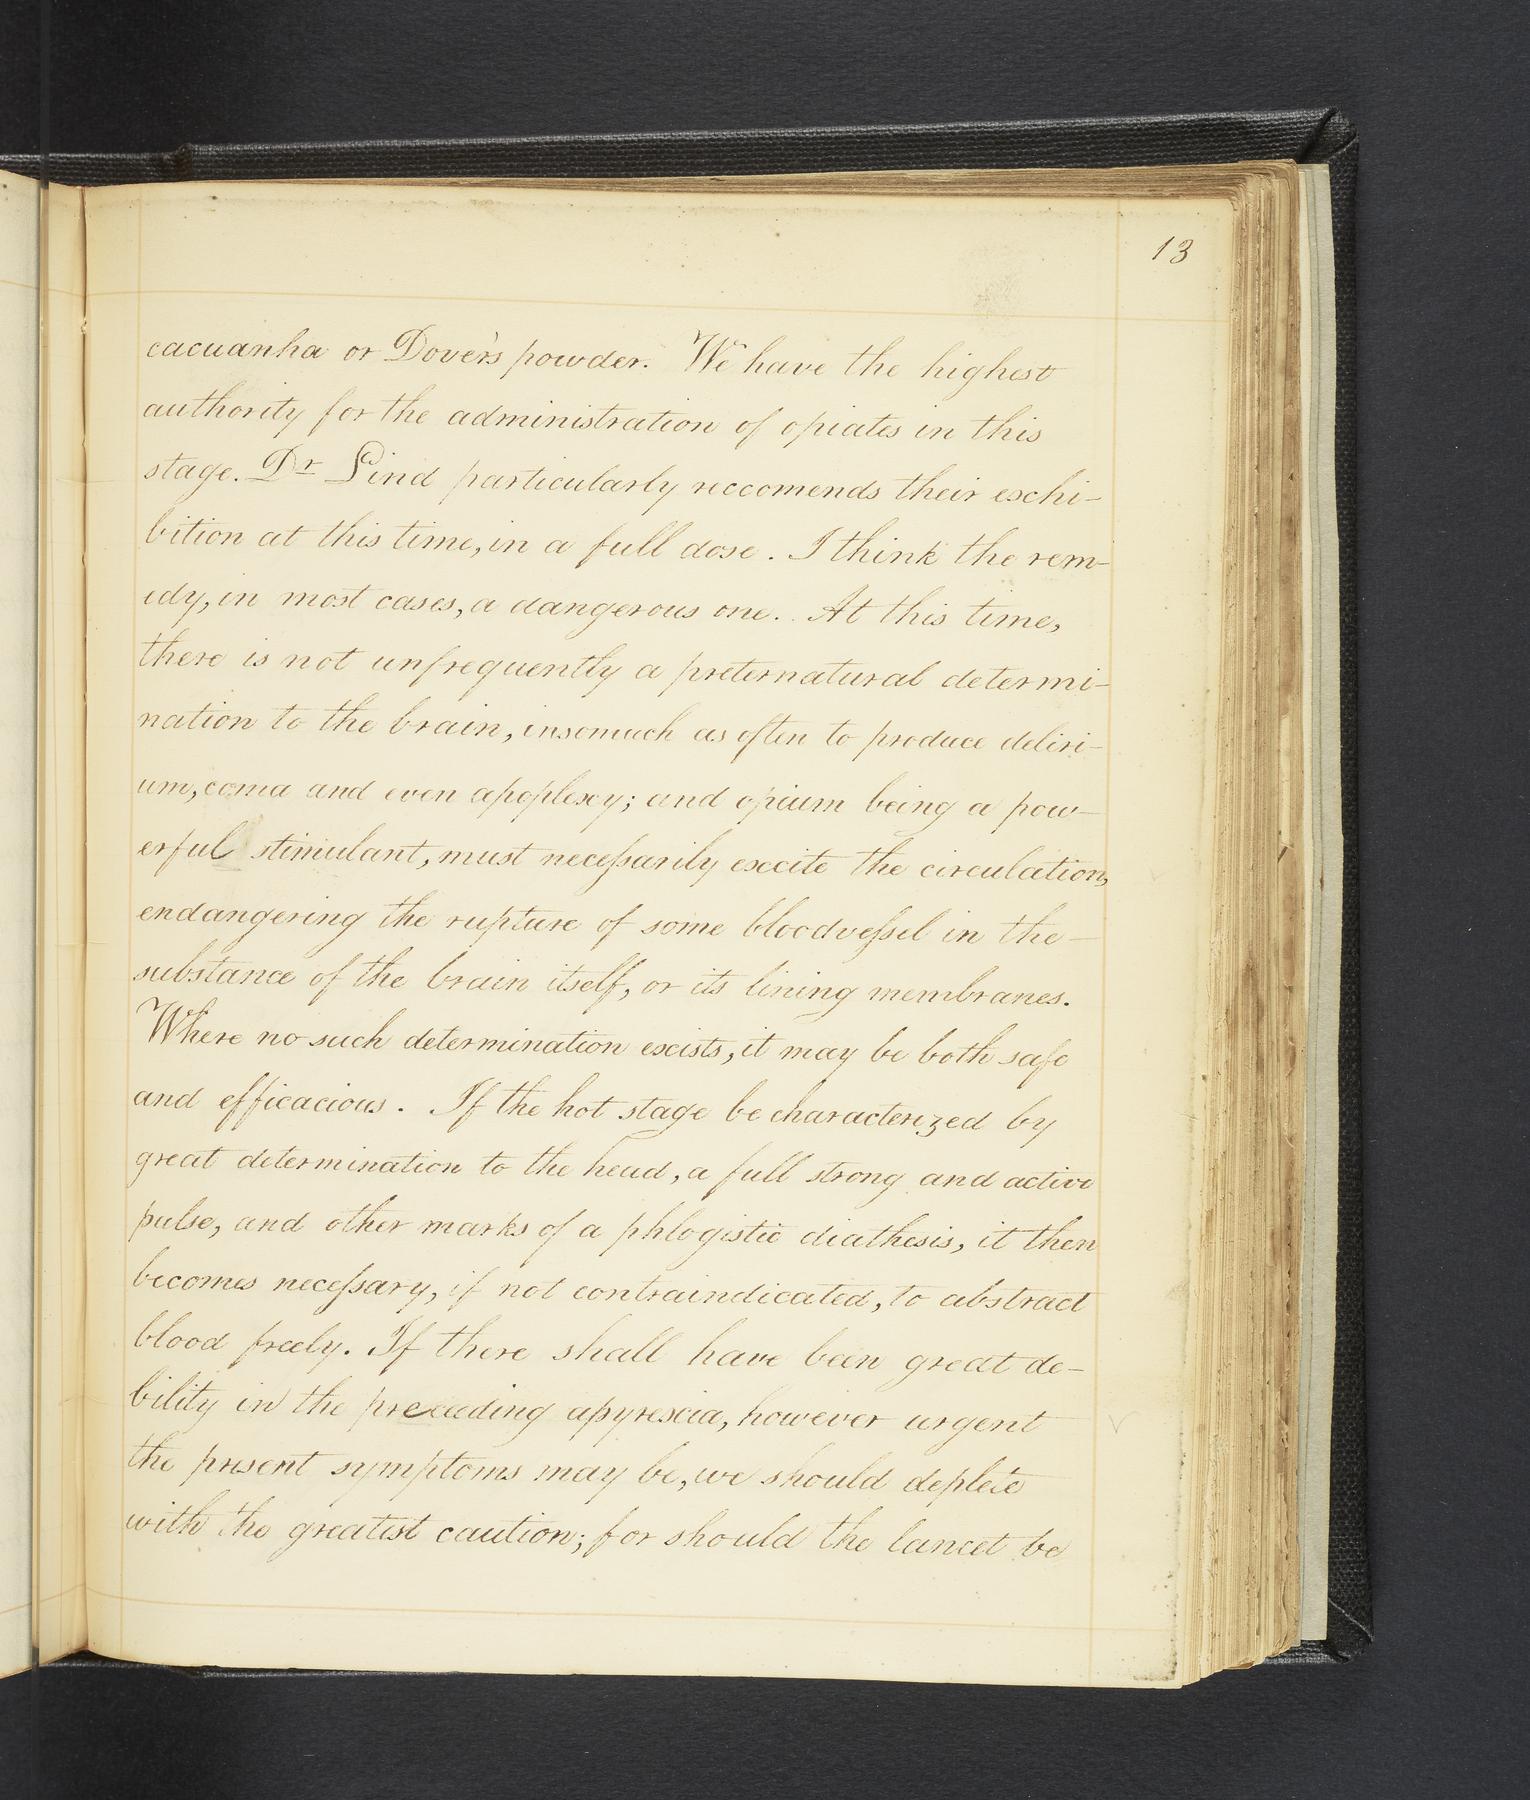 13
cacuanha or Dover's powder. We have the highest
authority for the administration of opiates in this
stage. Dr Lind particularly reccomends their exhi-
bition at this time, in a full dose. I think the rem-
edy, in most cases, a dangerous one. At this time,
there is not unfrequently a preternatural determi-
nation to the brain, insomuch as often to produce deliri-
um, coma and even apoplexy; and opium being a pow-
erful stimulant, must necessarily excite the circulation,
endangering the rupture of some bloodvessel in the
substance of the brain itself, or its lining membranes.
Where no such determination exists, it may be both safe
and efficacious. If the hot stage be characterized by
great determination to the head, a full strong and active
pulse, and other marks of a phlogistic diathesis, it then
becomes necessary, if not contraindicated, to abstract
blood freely. If there shall have been great de-
bility in the preceeding apyrexia, however urgent
the present symptoms may be, we should deplete
with the greatest caution; for should the lancet be